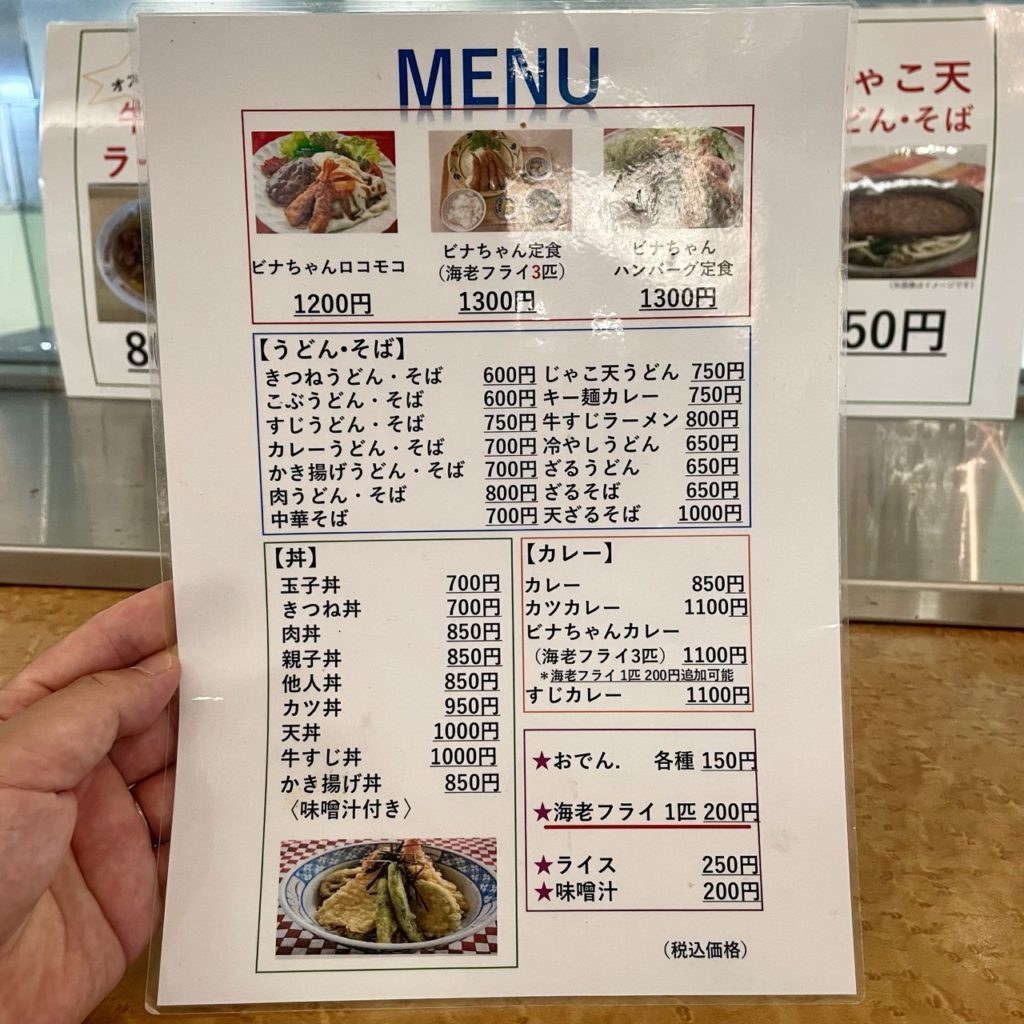 MENU
ビナちゃんロコモコ
1200円
ビナちゃん定食
（海老フライ3匹）
1300円
ビナちゃん
ハンバーグ定食
1300円
【うどん・そば】
きつねうどん・そば 600円
こぶうどん・そば 600円
すじうどん・そば 750円
カレーうどん・そば 700円
かき揚げうどん・そば 700円
肉うどん・そば 800円
中華そば 700円
じゃこ天うどん 750円
キー麺カレー 750円
牛すじラーメン 800円
冷やしうどん 650円
ざるうどん 650円
ざるそば 650円
天ざるそば 1000円
【丼】
玉子丼 700円
きつね丼 700円
肉丼 850円
親子丼 850円
他人丼 850円
カツ丼 950円
天丼 1000円
牛すじ丼 1000円
かき揚げ丼 850円
〈味噌汁付き〉
【カレー】
カレー 850円
カツカレー 1100円
ビナちゃんカレー
（海老フライ3匹） 1100円
＊海老フライ 1匹 200円追加可能
すじカレー 1100円
★おでん. 各種 150円
★海老フライ 1匹 200円
★ライス 250円
★味噌汁 200円
（税込価格）
ゃこ天
どん・そば
50円